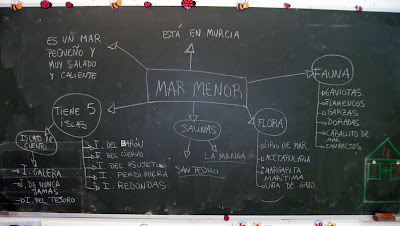 ES UN MAR
PEQUEÑO Y
MUY SALADO
Y CALIENTE
ESTÁ EN MURCIA
MAR MENOR
FAUNA
GAVIOTAS
FLAMENCOS
GARZAS
DORADAS
CABALLITO DE
MAR
CANGREJOS
TIENE 5
ISLAS
I. DEL BARÓN
I. DEL CIERVO
I. DEL SUJETO
I. PERDIGUERA
I. REDONDAS
ISLAS DE
CUENTO
I. GALERA
I. DE NUNCA
JAMAS
I. DEL TESORO
SALINAS
SAN PEDRO
LA MANGA
FLORA
LIRIO DE MAR
ACETABULARIA
MARGARITA
MARÍTIMA
UÑA DE GATO